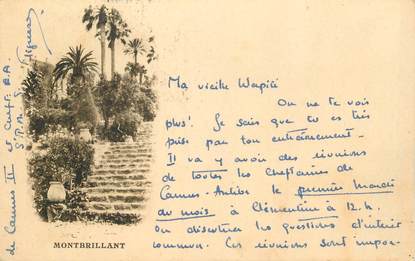 Ma vieille Wapiti
On ne te vois
plus! Je sais que tu es très
prise par ton
Il va y avoir des réunions
de toutes les Cheftaines de
Cannes-Antibes le premier Mardi
du mois à Clémentine à 12. h.
On discutera les questions d'intérêt
commun. Ces réunions sont impor-
MONTBRILLANT
de Cannes II et